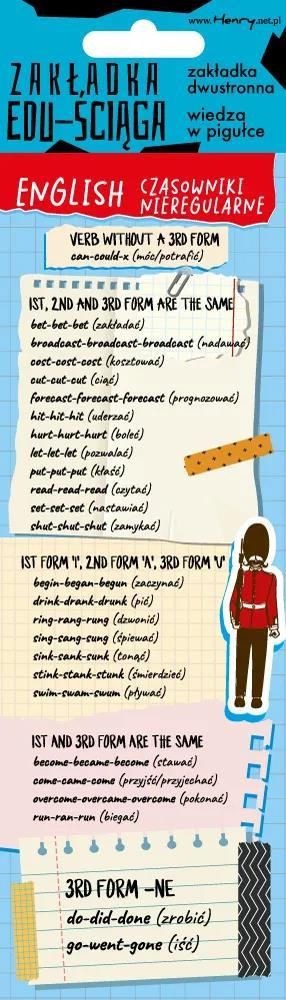 www.Henry.net.pl
ZAKŁADKA
EDU-ŚCIĄGA
zakładka
dwustronna
wiedza
w pigułce
ENGLISH
CZASOWNIKI
NIEREGULARNE
VERB WITHOUT A 3RD FORM
can-could-x (móc/potrafić)
1ST, 2ND AND 3RD FORM ARE THE SAME
bet-bet-bet (zakładać)
broadcast-broadcast-broadcast (nadawać)
cost-cost-cost (kosztować)
cut-cut-cut (ciąć)
forecast-forecast-forecast (prognozować)
hit-hit-hit (uderzać)
hurt-hurt-hurt (boleć)
let-let-let (pozwalać)
put-put-put (kłaść)
read-read-read (czytać)
set-set-set (nastawiać)
shut-shut-shut (zamykać)
1ST FORM 'I', 2ND FORM 'A', 3RD FORM 'U'
begin-began-begun (zaczynać)
drink-drank-drunk (pić)
ring-rang-rung (dzwonić)
sing-sang-sung (śpiewać)
sink-sank-sunk (tonąć)
stink-stank-stunk (śmierdzieć)
swim-swam-swum (pływać)
1ST AND 3RD FORM ARE THE SAME
become-became-become (stawać)
come-came-come (przyjść/przyjechać)
overcome-overcame-overcome (pokonać)
run-ran-run (biegać)
3RD FORM -NE
do-did-done (zrobić)
go-went-gone (iść)